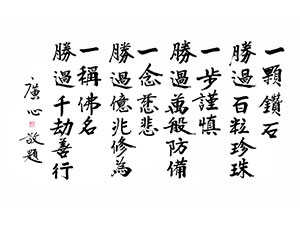 一顆鑽石
勝過百粒珍珠
一步謹慎
勝過萬般防備
一念慈悲
勝過億兆修為
一稱佛名
勝過千劫善行
廣心敬題